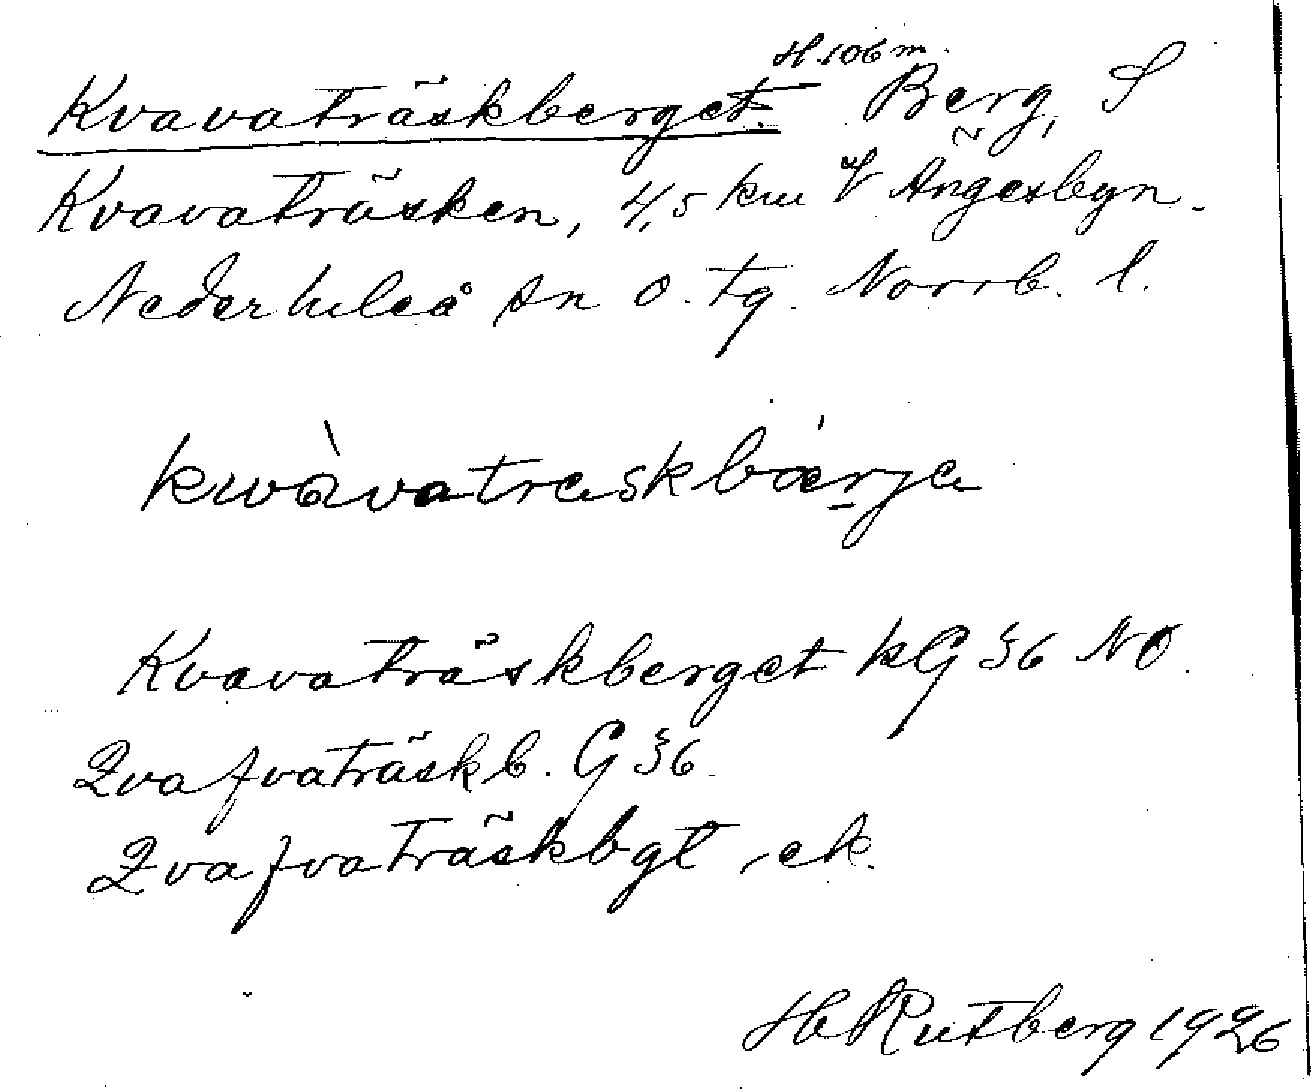 H. 106 m.
Kvavaträskberget. Berg, S
Kvavaträsken, 4,5 km V Ängesbyn.
Nederluleå sn o. tg. Norrb. l.
kwàvatraskbǽrja
Kvavaträskberget kG §6 NO.
Qvafvaträskb. G §6.
Qvafvaträskbgt, ek.
H Rutberg 1926